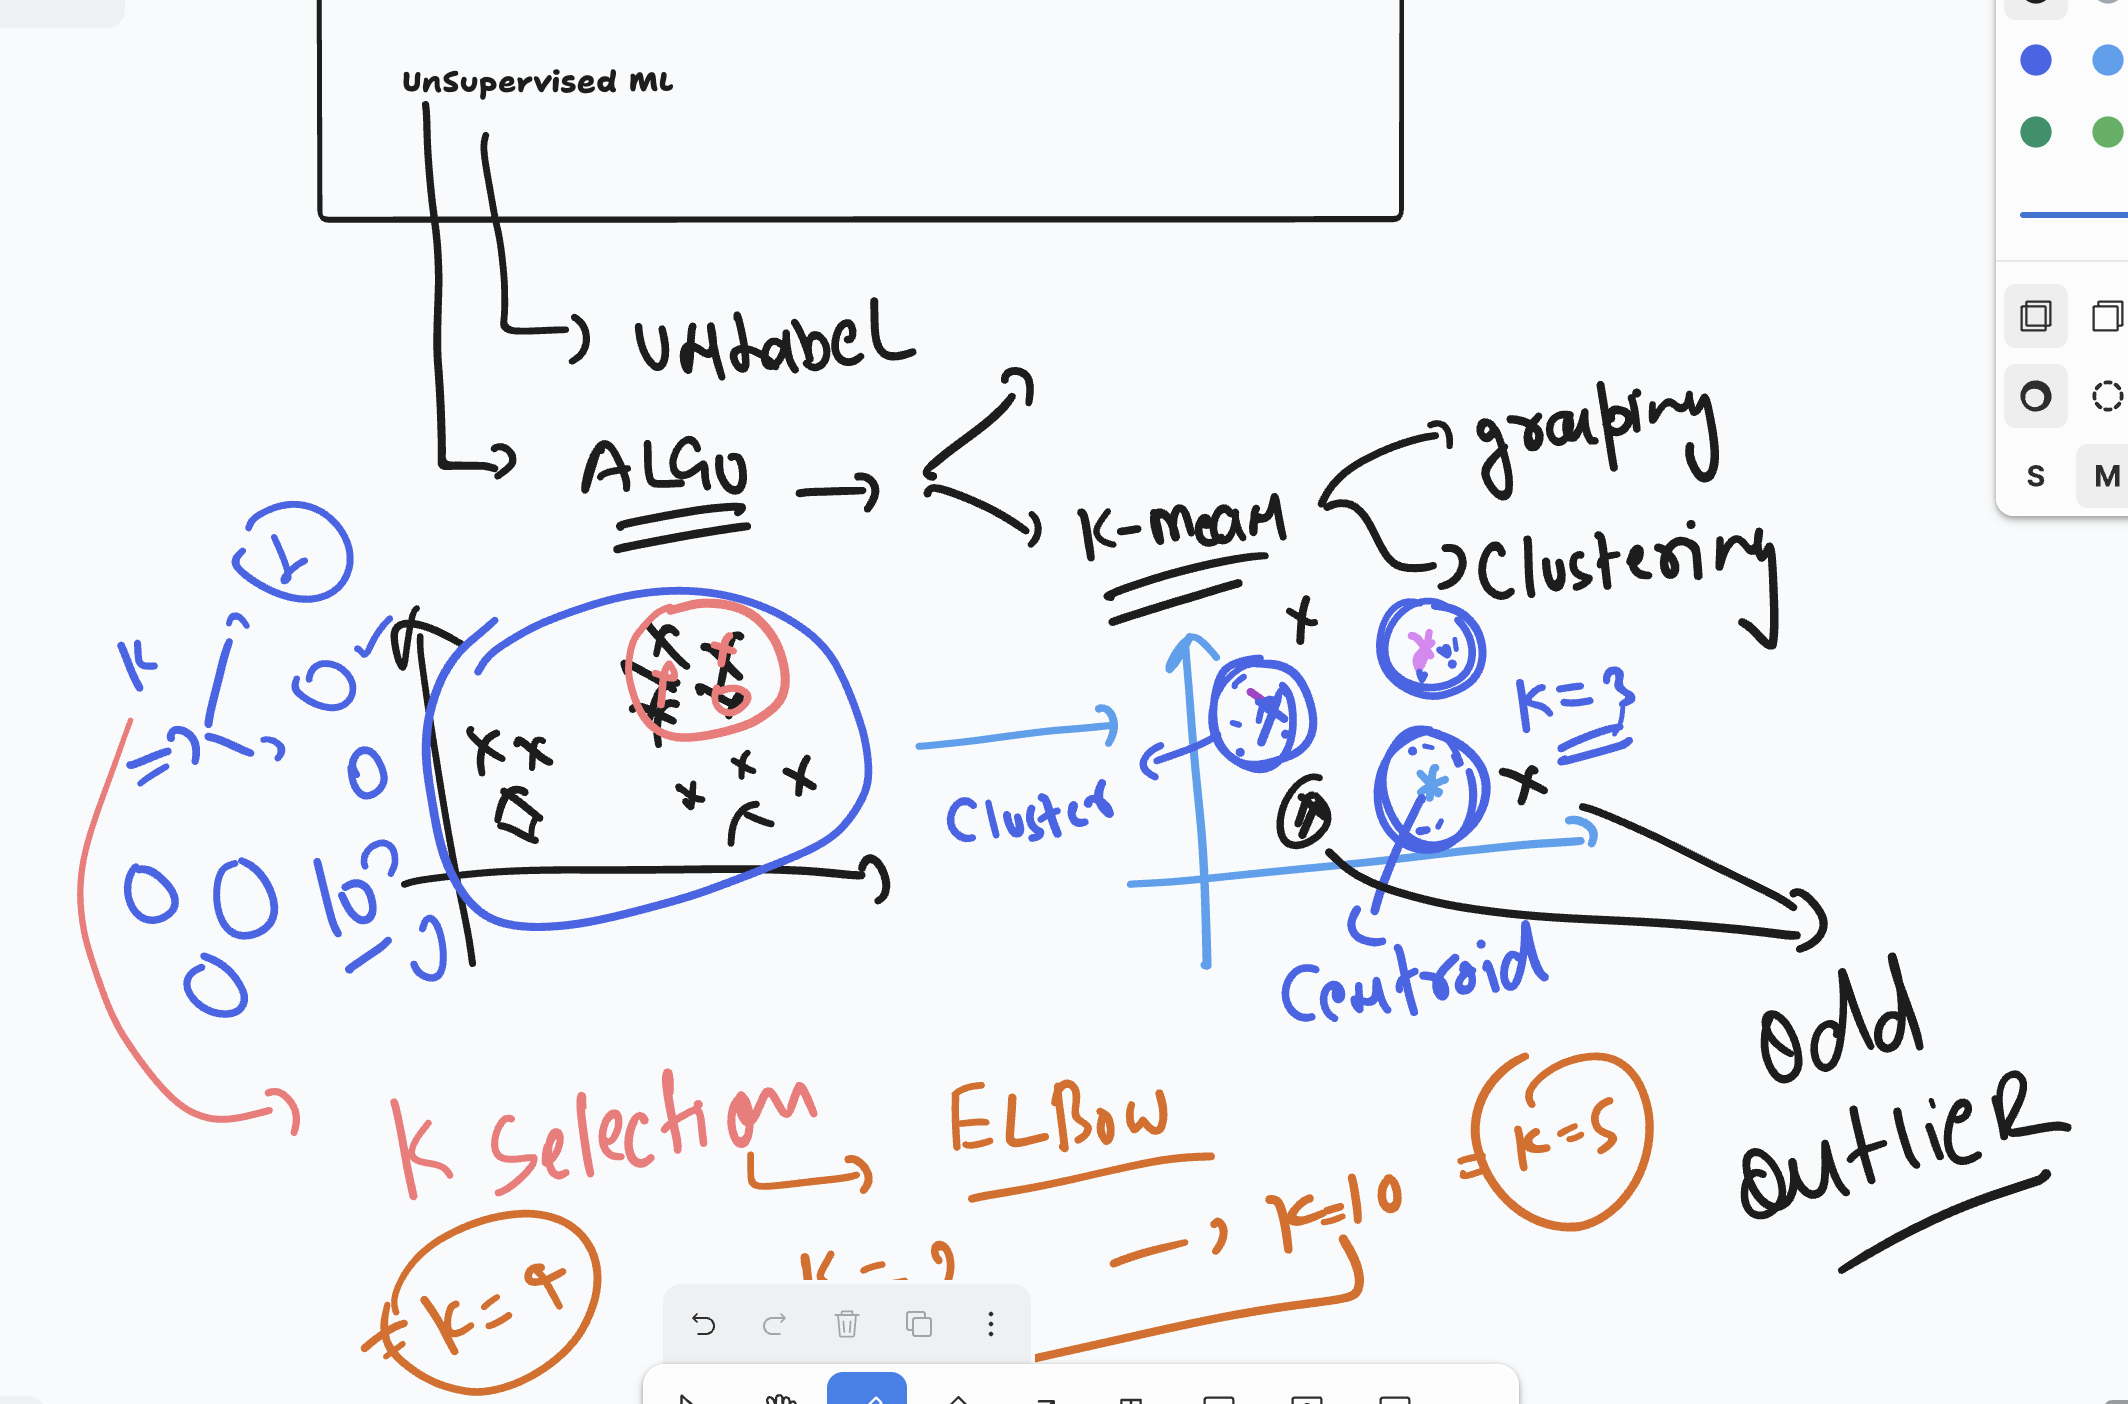 UnSupervised ML
UnLabel
ALGO
K-mean
grouping
Clustering
K
K=3
Cluster
Centroid
10
odd
outlier
K Selection
ELBOW
K=5
K=10
K=9
S
M